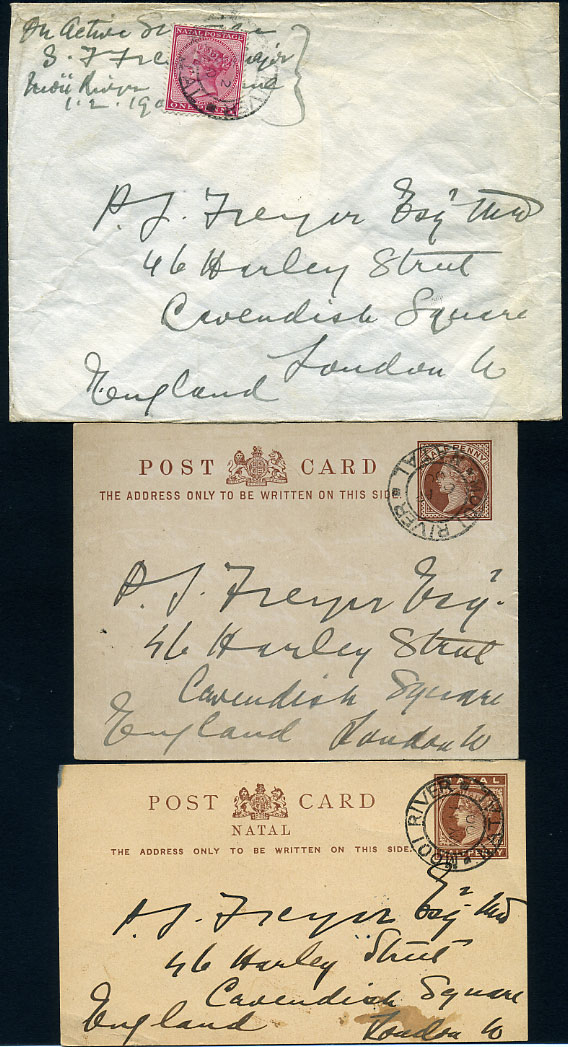 On Active
S. F. Freyer Major
Mooi River
1.2.19
NATAL POSTAGE
ONE PENNY
P. J. Freyer Esqr MD
46 Harley Street
Cavendish Square
London W
England
POST CARD
THE ADDRESS ONLY TO BE WRITTEN ON THIS SIDE.
HALFPENNY
MOOI RIVER NATAL
P. J. Freyer Esqr.
46 Harley Street
Cavendish Square
England London W
POST CARD
NATAL
THE ADDRESS ONLY TO BE WRITTEN ON THIS SIDE.
NATAL
HALFPENNY
MOOI RIVER NATAL
P. J. Freyer Esqr MD
46 Harley Street
Cavendish Square
England London W